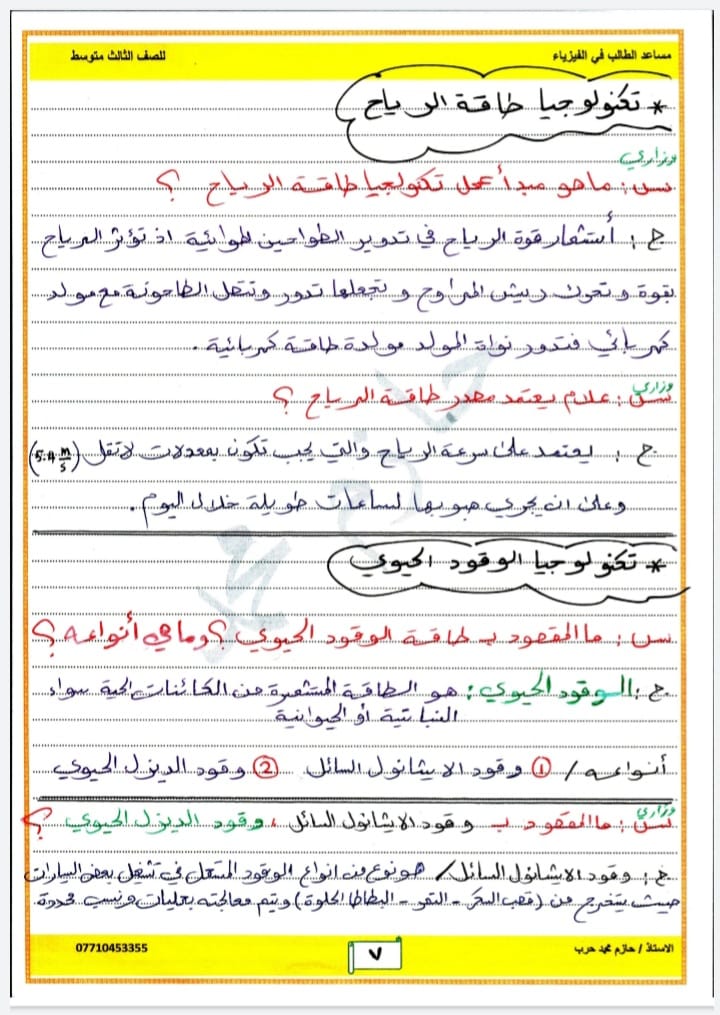 مساعد الطالب في الفيزياء للصف الثالث متوسط
* تكنولوجيا طاقة الرياح
وزاري
س: ماهو مبدأ عمل تكنلوجيا طاقة الرياح ؟
ج: أستثمار قوة الرياح في تدوير الطواحين الهوائية اذ تؤثر الرياح
بقوة وتحرك ريش المراوح وتجعلها تدور وتتصل الطاحونة مع مولد
كهربائي فتدور نواة المولد مولدة طاقة كهربائية.
وزاري
س: علام يعتمد مصدر طاقة الرياح ؟
ج: يعتمد على سرعة الرياح والتي يجب تكون بمعدلات لاتقل (5.4 m/s)
وعلى ان يجري هبوبها لساعات طويلة خلال اليوم.
* تكنولوجيا الوقود الحيوي
س: ما المقصود بـ طاقة الوقود الحيوي ؟ وماهي أنواعه ؟
ج: الوقود الحيوي: هو الطاقة المستثمرة من الكائنات الحية سواء
النباتية أو الحيوانية
أنواعه / ① وقود الايثانول السائل ② وقود الديزل الحيوي
وزاري
س: ما المقصود بـ وقود الايثانول السائل ، وقود الديزل الحيوي ؟
ج: وقود الايثانول السائل / هو نوع من انواع الوقود المستعمل في تشغيل بعض السيارات
حيث يستخرج من (قصب السكر - التمر - البطاطا الحلوة) ويتم معالجته بعمليات ونسب محددة.
الاستاذ / حازم محمد حرب ٧ 07710453355
حازم محمد